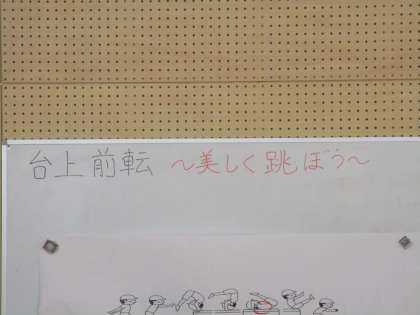 台上前転 〜美しく跳ぼう〜